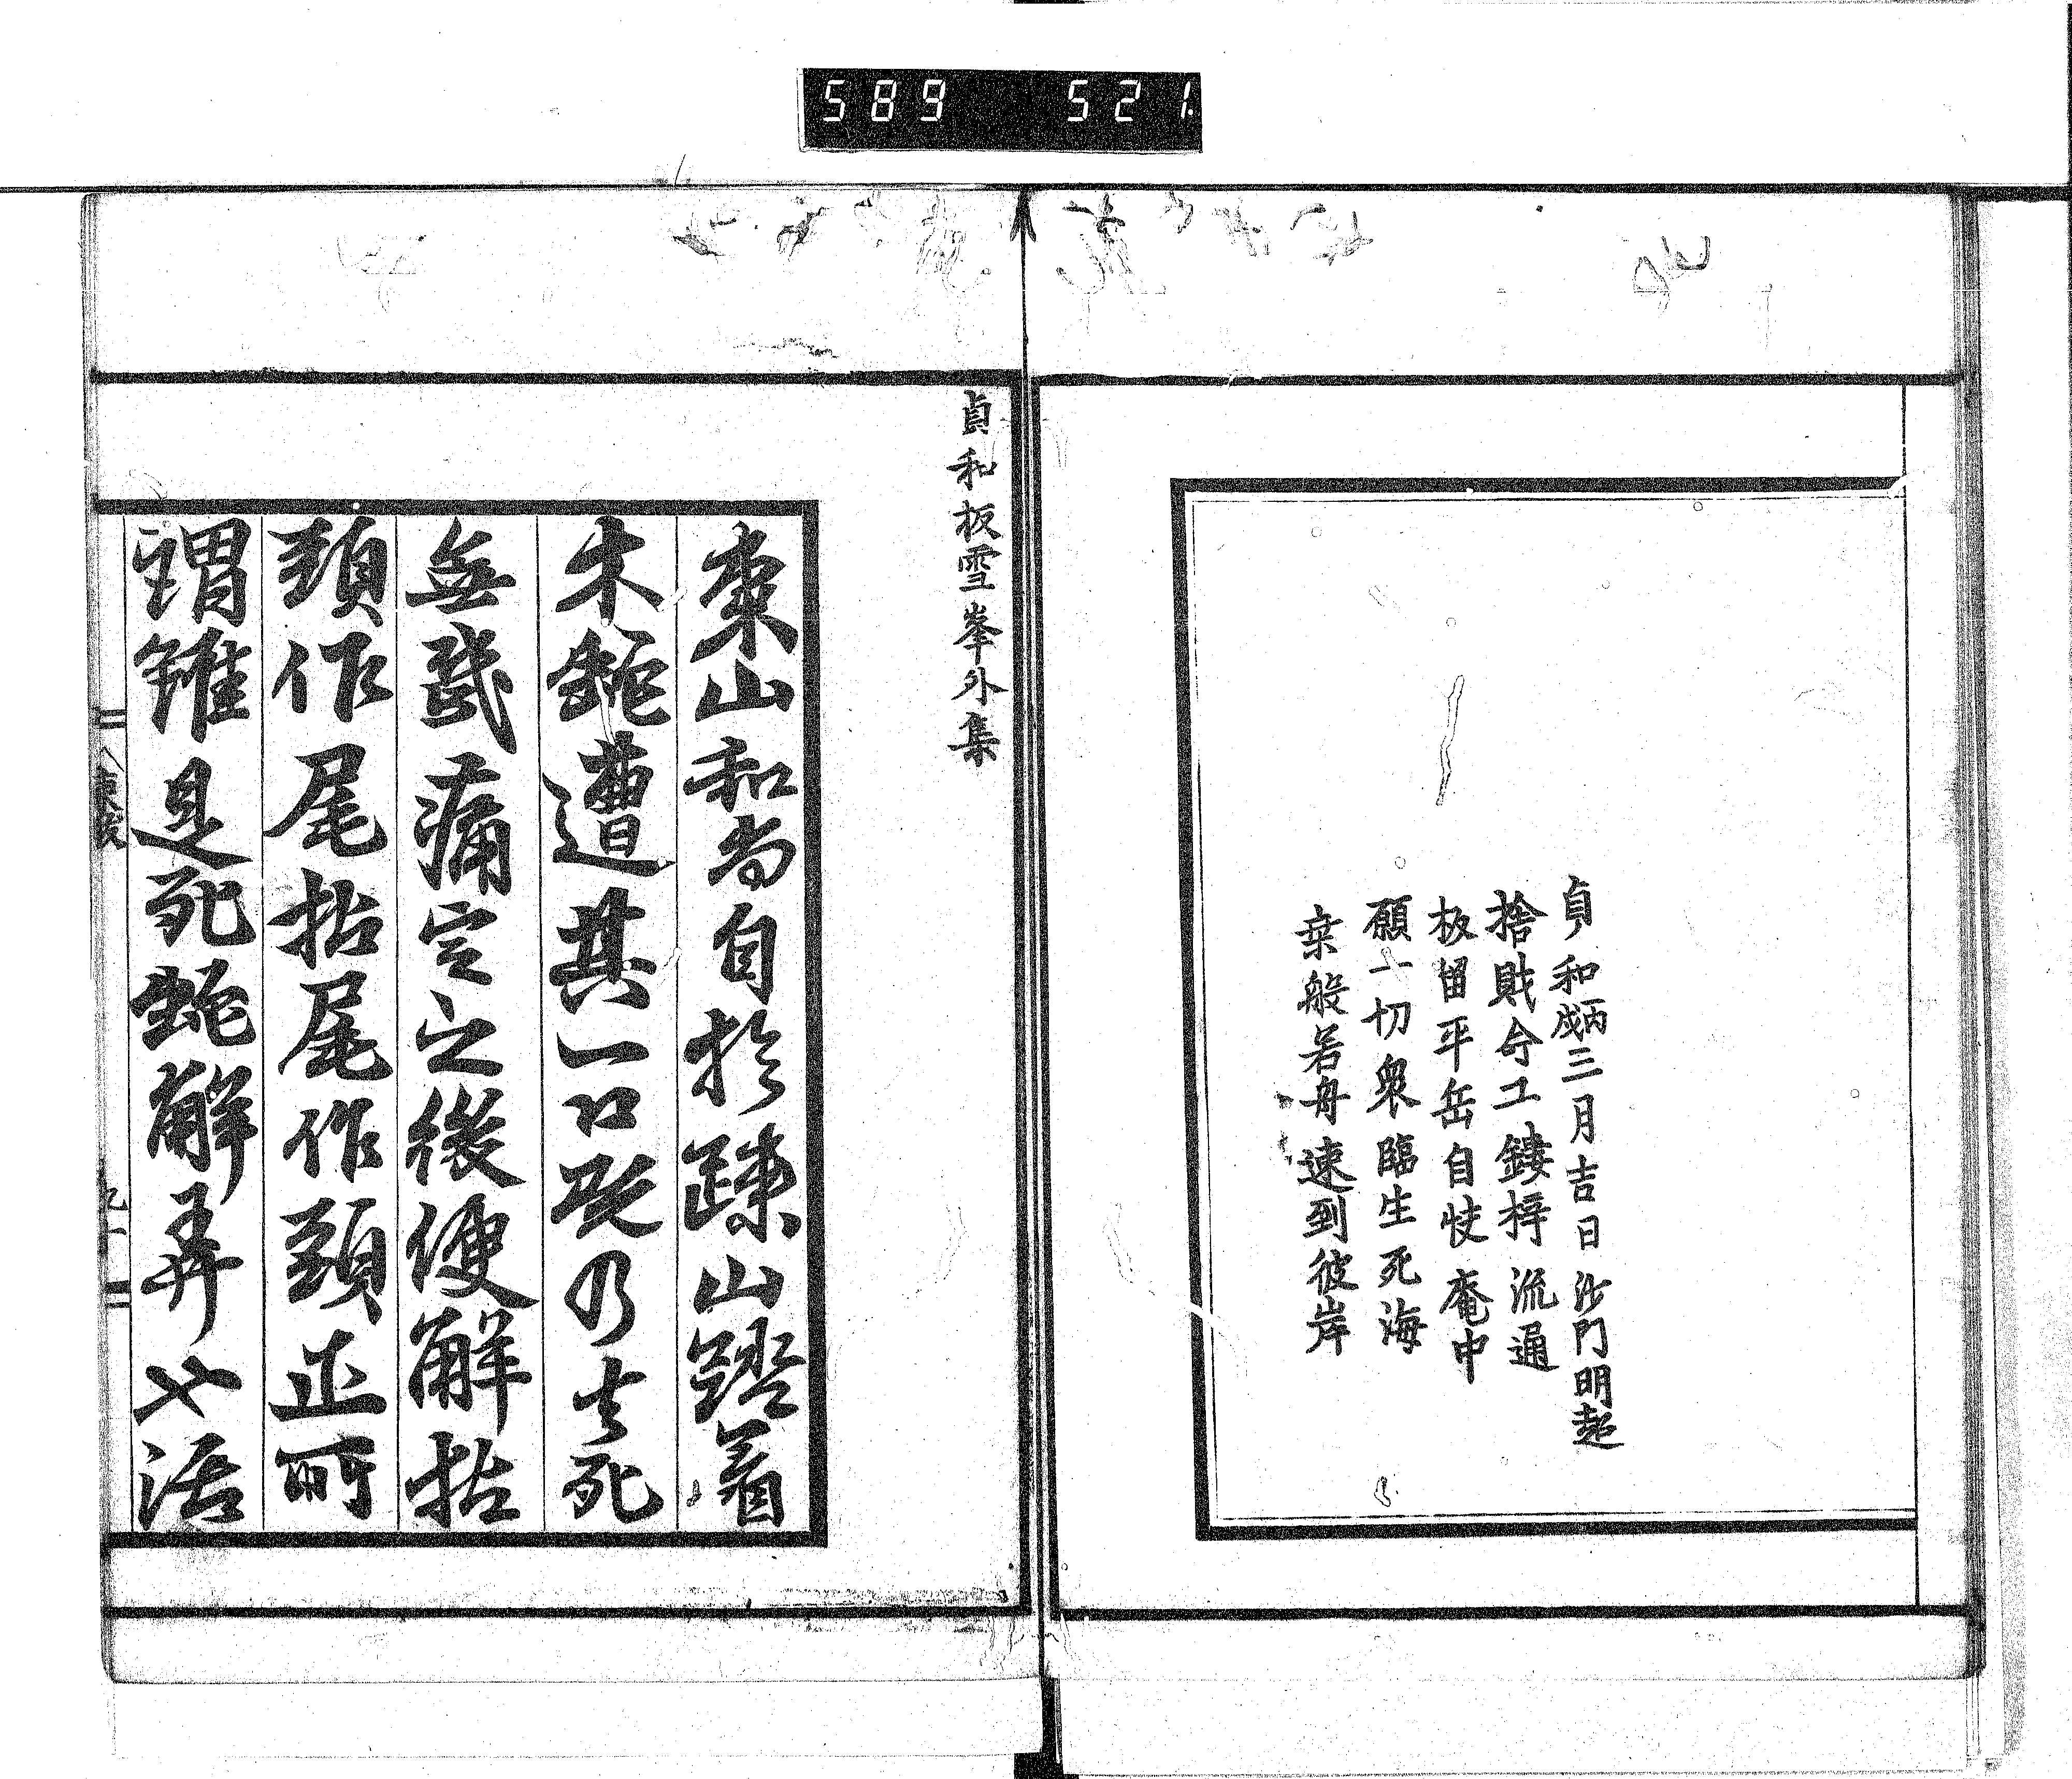 589 521
貞和丙戌三月吉日沙門明超
捨財命工鏤梓流通
板留平岳自快庵中
願一切衆臨生死海
乗般若舟速到彼岸
貞和板雪峯外集
棗山和尚自於踈山蹬着
木虵遭其一口既乃去死
無幾痛定之後便解拈
頭作尾拈尾作頭正所
謂雖是死虵解弄也活